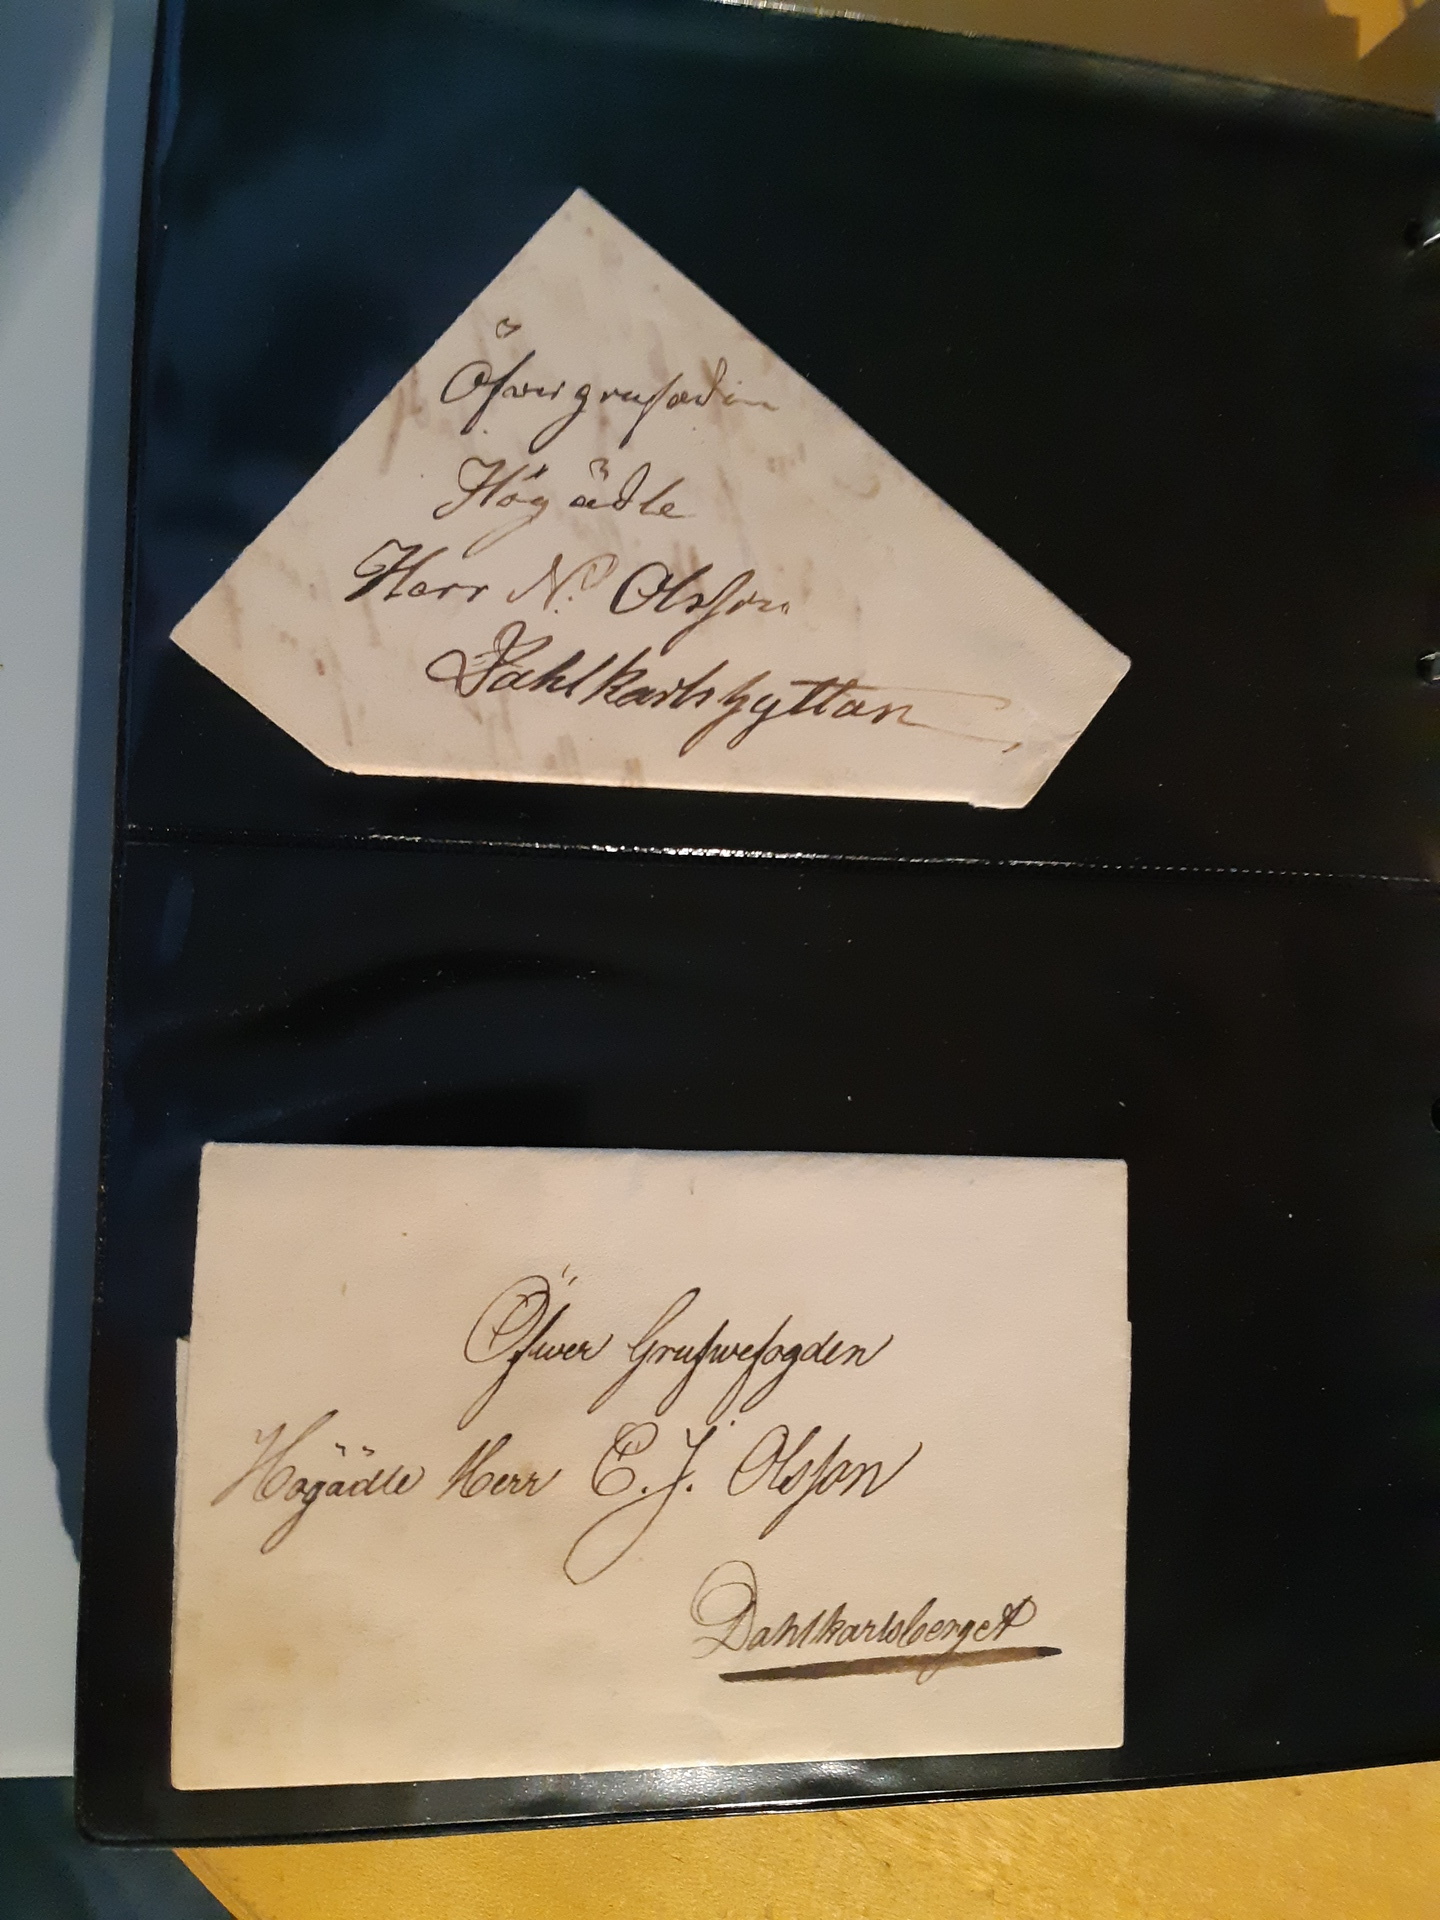 Öfwergrufodin
Högädle
Herr N.o Olsson
Dahlkarlshyttan
Öfwer Grufwefogden
Högädle Herr C. J. Olsson
Dahlkarlsberget